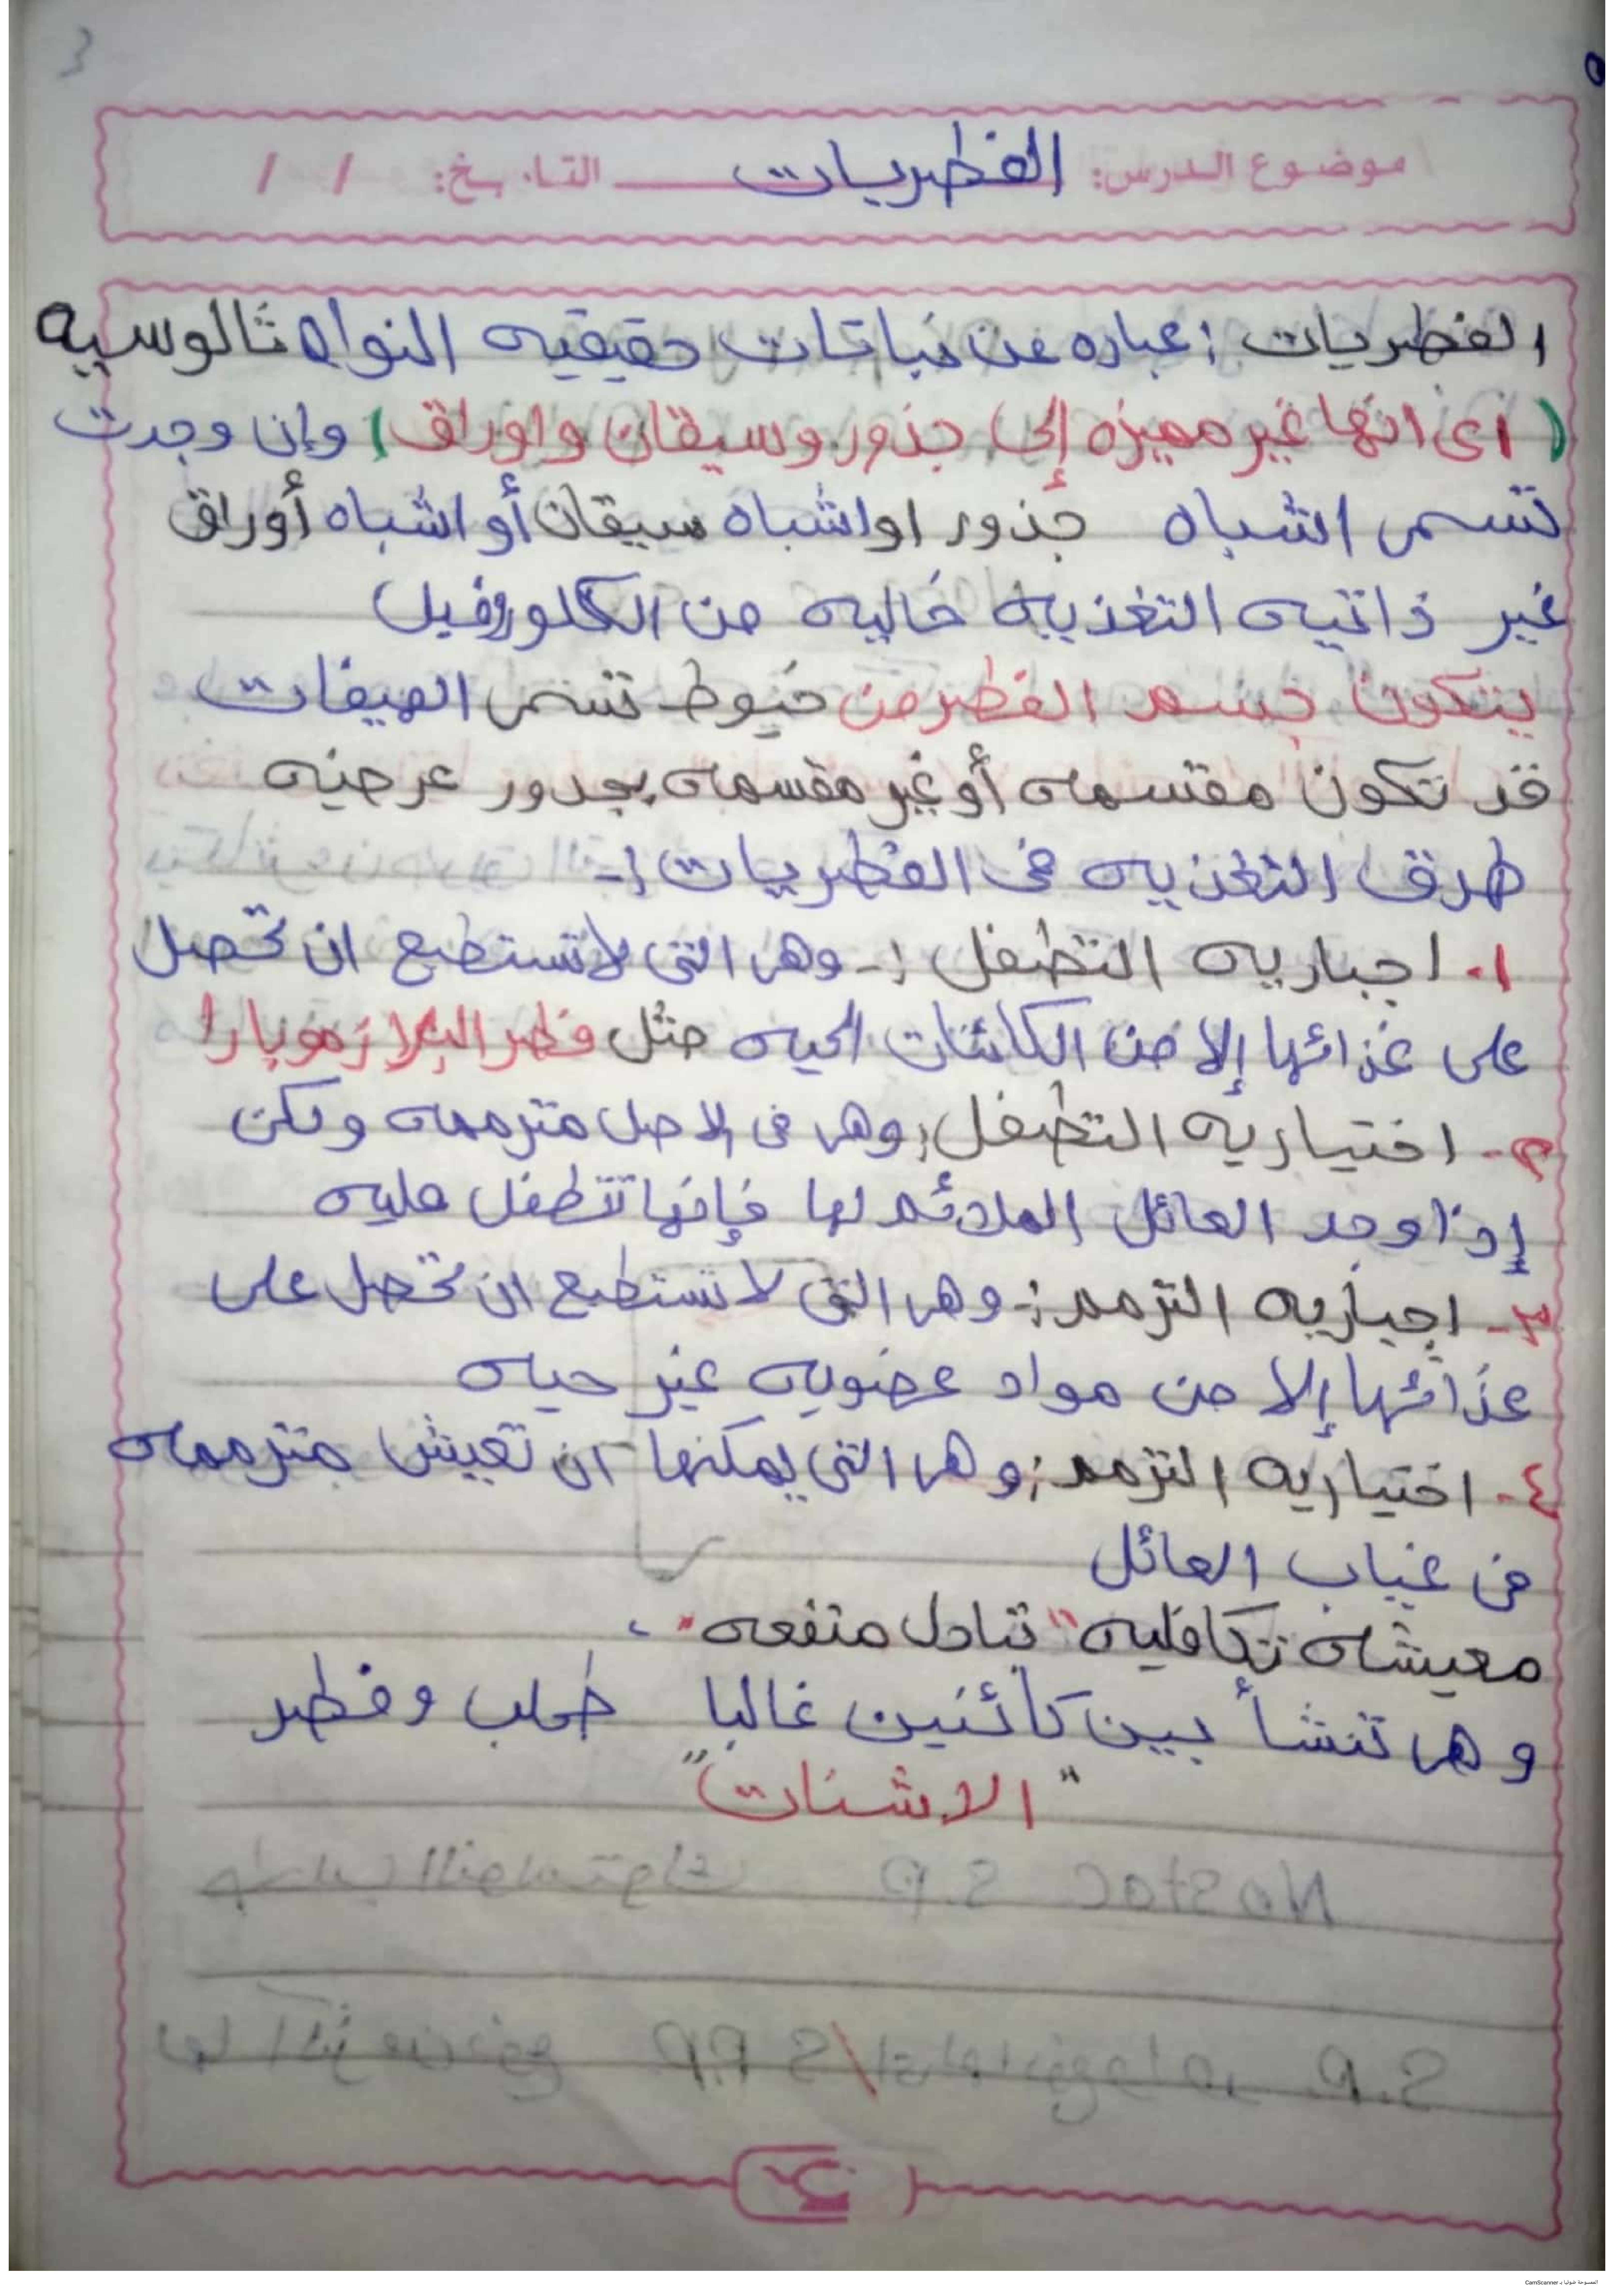 موضوع الدرس: الفطريات التاريخ: / /
الفطريات : عباره عن نباتات حقيقيه النواه ثالوسيه
( اى انها غير مميزه إلى جذور وسيقان واوراق ) وإن وجدت
تسمى اشباه جذور او اشباه سيقان أو اشباه أوراق
غير ذاتيه التغذيه خاليه من الكلوروفيل
يتكون جسم الفطر من خيوط تسمى الهيفات
قد تكون مقسمه أو غير مقسمه بجدور عرضيه
طرق التغذيه فى الفطريات :-
١. اجباريه التطفل :- وهى التى لا تستطيع ان تحصل
على غذائها إلا من الكائنات الحيه مثل فطر البلازموبارا
٢- اختياريه التطفل : وهى فى الاصل مترممه ولكن
إذا وجد العائل الملائم لها فإنها تتطفل عليه
٣- اجباريه الترمم :- وهى التى لا تستطيع ان تحصل على
غذائها إلا من مواد عضويه غير حيه
٤- اختياريه الترمم : وهى التى يمكنها ان تعيش مترممه
فى غياب العائل
معيشه تكافليه " تبادل منفعه "
وهى تنشأ بين كائنين غالبا طحلب وفطر
" الاشنات "
الممسوحة ضوئيا بـ CamScanner